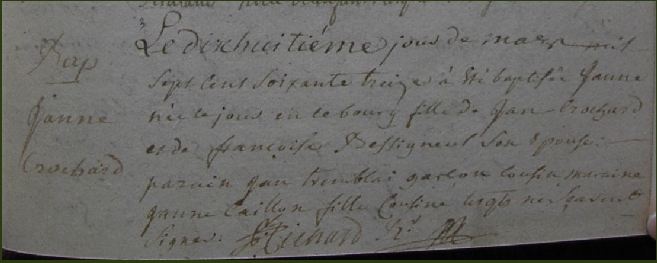 Bap
Janne
Crochard
Le dixhuitiéme jour de mars mil
sept cent soixante treize à été baptisée Janne
née ce jour en ce bourg fille de Jan Crochard
et de françoise Destigneul son épouse
parain jan tremblai garson cousin maraine
janne Caillon fille Cousine lesqls ne sçavent
signer. Richard Rr